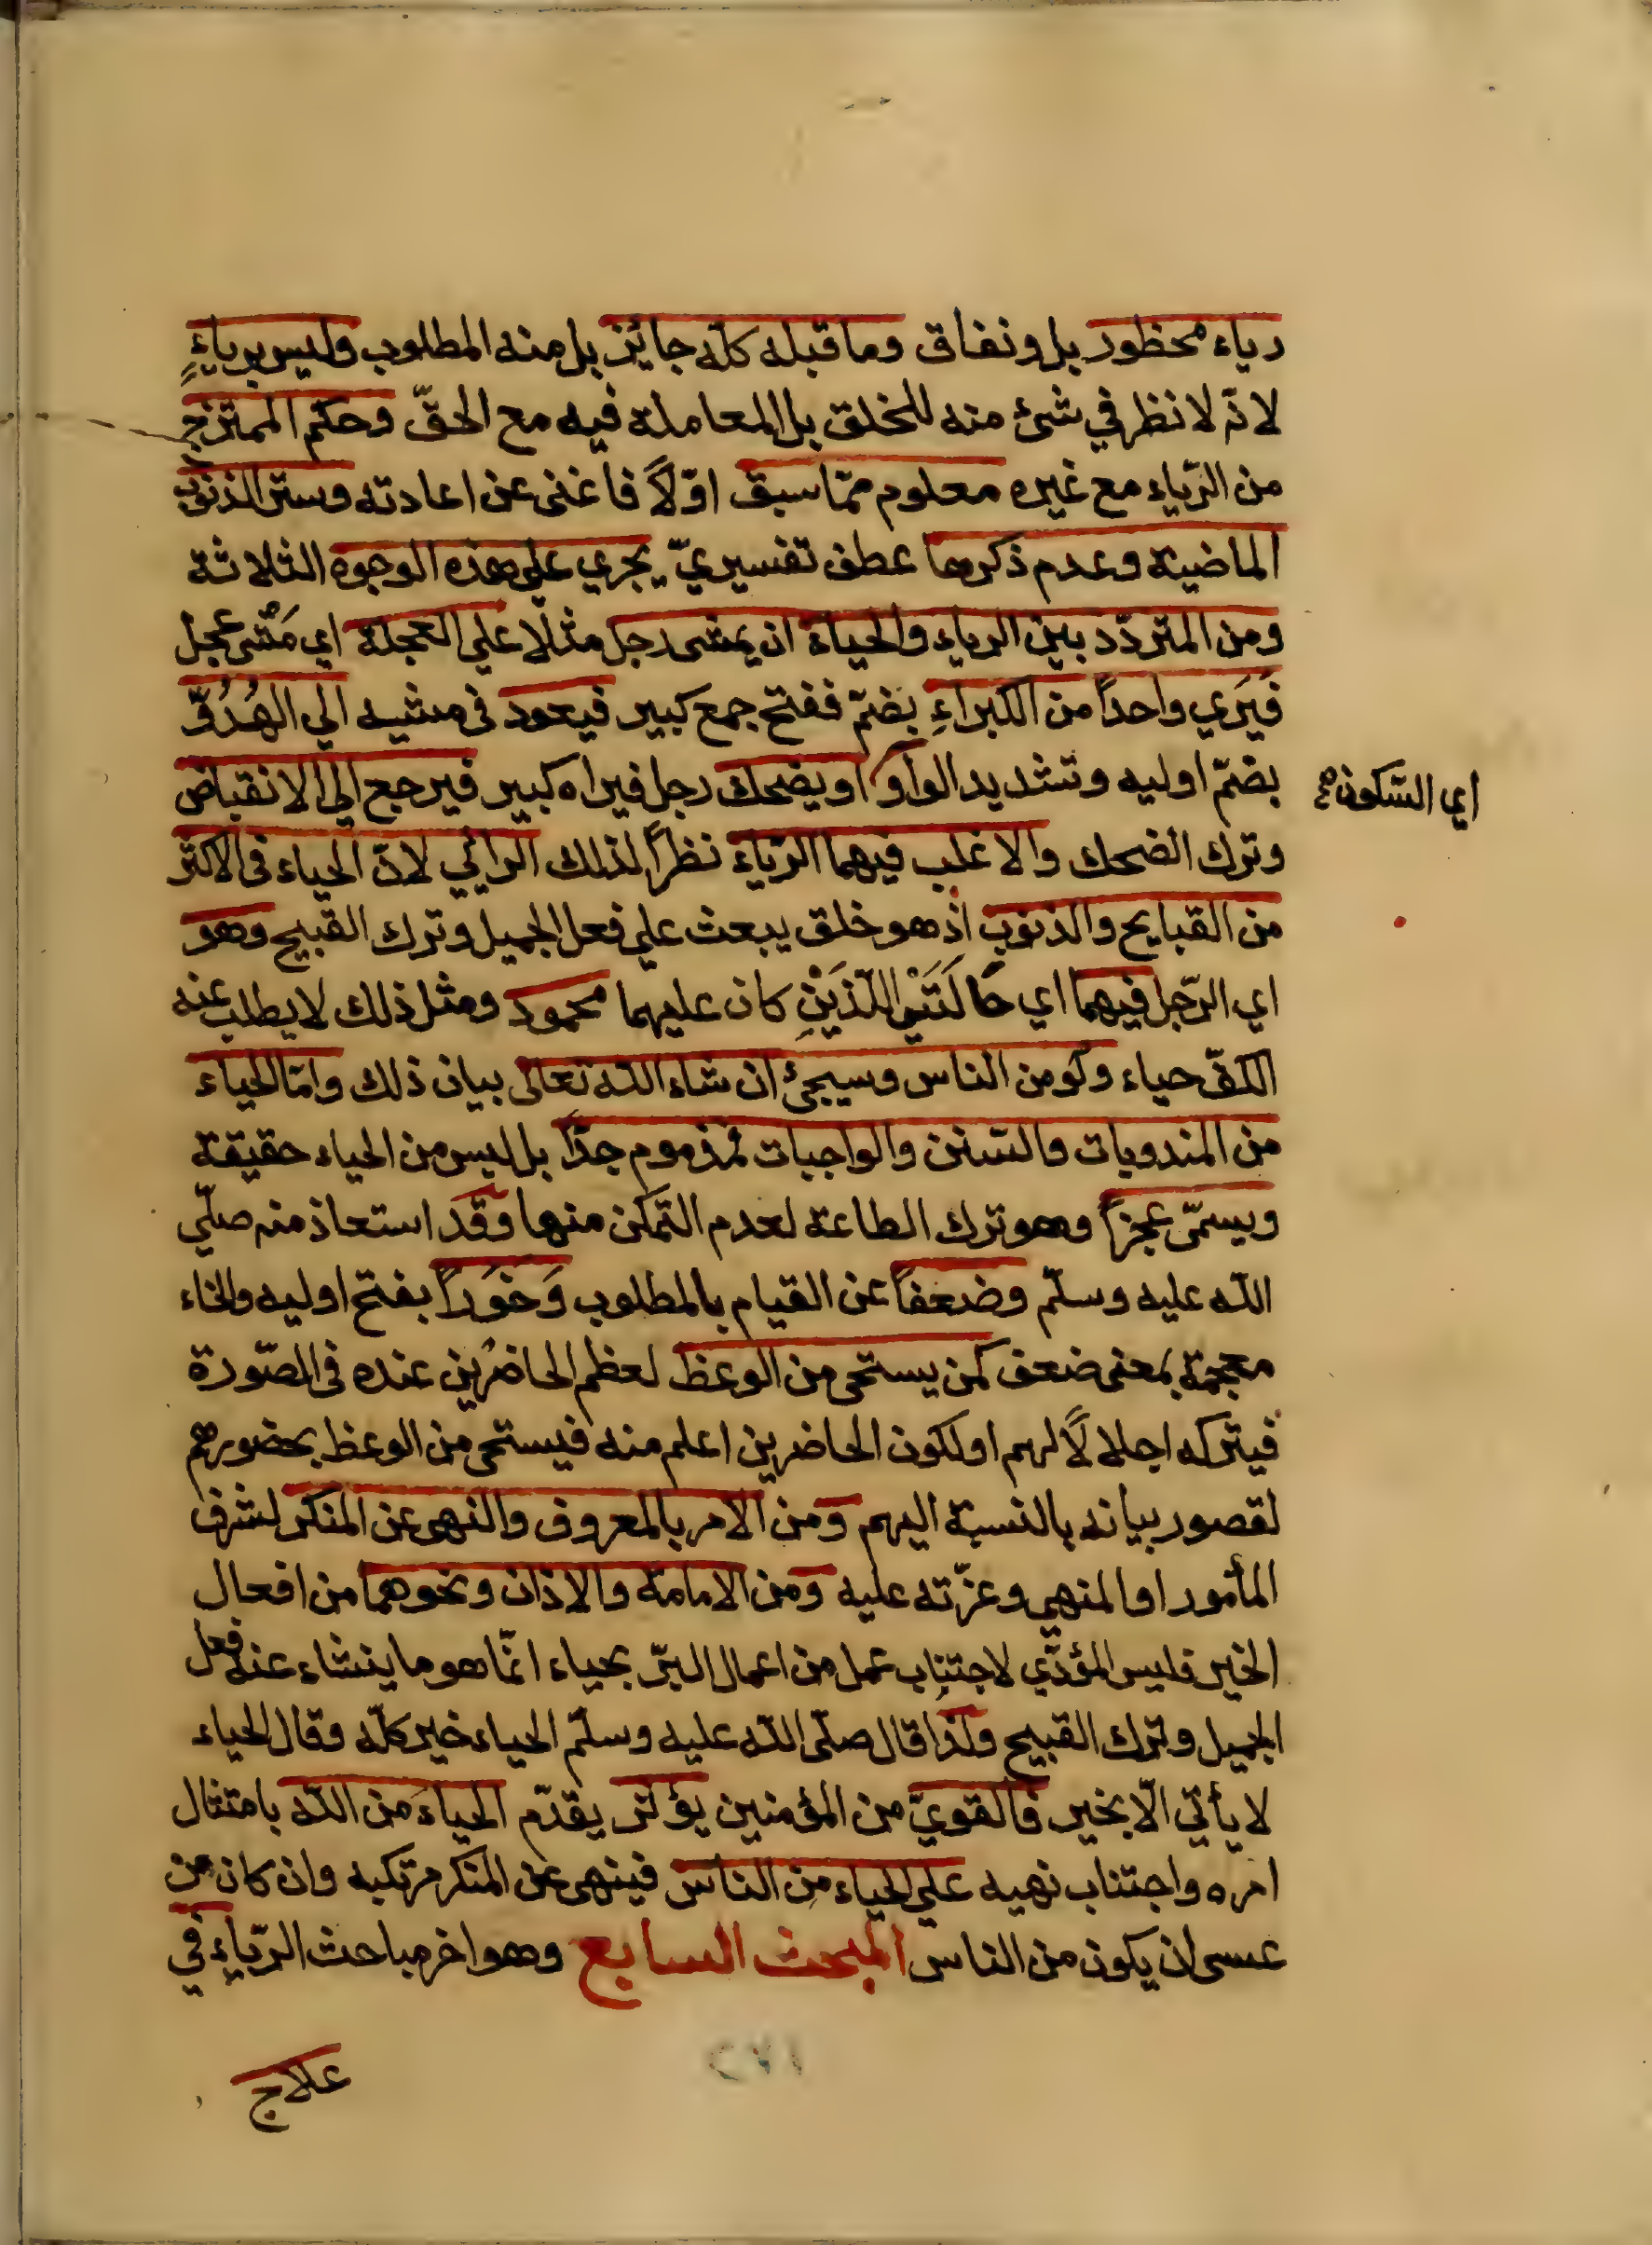 رياء محظور بل ونفاق وما قبله كله جايز بل منه المطلوب وليس برياءٍ
لانه لا نظر في شئ منه للخلق بل المعاملة فيه مع الحقّ وحكم الممتزج
من الرّياء مع غيره معلوم ممّا سبق اوّلاً فاغنى عن اعادته وستر الذنوب
الماضية وعدم ذكرها عطف تفسيريّ يجري علي هذه الوجوه الثلاثة
ومن المتردّد بين الرياء والحياء ان يمشى رجل مثلا علي العجلة اي مَشْى عجل
فيَرَي واحداً من الكبراءِ بضمّ ففتح جمع كبير فيعود في مشيه الي الهُدُوّ
بضمّ اوليه وتشديد الواو او يضحك رجل فيراه كبير فيرجع الي الانقباض
اي السّكون صح
وترك الضحك والاغلب فيهما الرّياء نظراً لذلك الرائي لانّ الحياء في الاكثر
من القبايح والذنوب اذ هو خلق يبعث علي فعل الجميل وترك القبيح وهو
اي الرّجل فيهما اي حَالَتَيْهِ اللّذَيْنِ كان عليهما محمود ومثل ذلك لا يطلب عنه
الكفّ حياء ولو من الناس وسيجئ ان شاء الله تعالى بيان ذلك وامّا الحياء
من المندوبات والسّنن والواجبات فمذموم جدّاً بل ليس من الحياء حقيقة
ويسمّى عجزاً وهو ترك الطاعة لعدم التمكّن منها وقد استعاذ منه صلّي
الله عليه وسلّم وضعفاً عن القيام بالمطلوب وَخَوَراً بفتح اوليه والخاء
معجمة بمعنى ضعف كمن يستحى من الوعظ لعظم الحاضرين عنده في الصّورة
فيتركه اجلالاً لهم او لكون الحاضرين اعلم منه فيستحى من الوعظ بحضورهم
لقصور بيانه بالنسبة اليهم ومن الامر بالمعروف والنهى عن المنكر لشرف
المأمور او المنهي وعزّته عليه ومن الامامة والاذان ونحوهما من افعال
الخير فليس المؤدّي لاجتناب عمل من اعمال البرّ بحياء انّما هو ما ينشاء عنه فعل
الجميل وترك القبيح ولذا قال صلّى الله عليه وسلّم الحياء خير كلّه وقال الحياء
لا يأتي الّا بخير فالقويّ من المؤمنين يؤثر يقدّم الحياءَ من الله بامتثال
امره واجتناب نهيه علي الحياء من الناس فينهى عن المنكر مرتكبه وان كان من
عسى ان يكون من الناس المبحث السابع وهو اخر مباحث الرّياء في
علاج